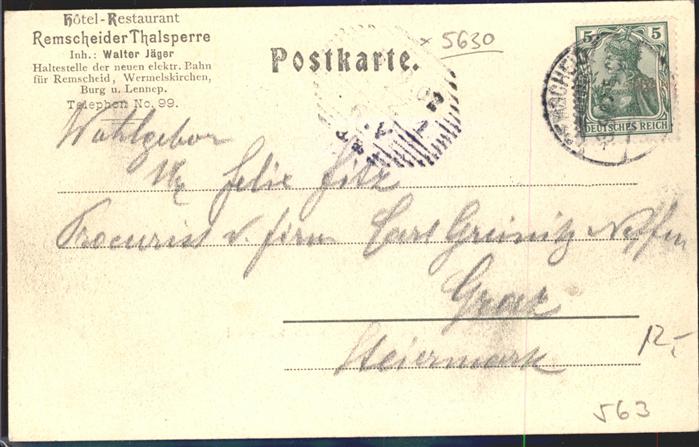 Hôtel-Restaurant
Remscheider Thalsperre
Inh.: Walter Jäger
Haltestelle der neuen elektr. Bahn
für Remscheid, Wermelskirchen,
Burg u. Lennep.
Telephon No. 99.
Postkarte.
x 5630
5 5
DEUTSCHES REICH
REMSCHEID
Wohlgebor
Felix Fitz
Procurist d. Firm Carl Greinitz Neffen
Graz
Steiermark
12,-
563